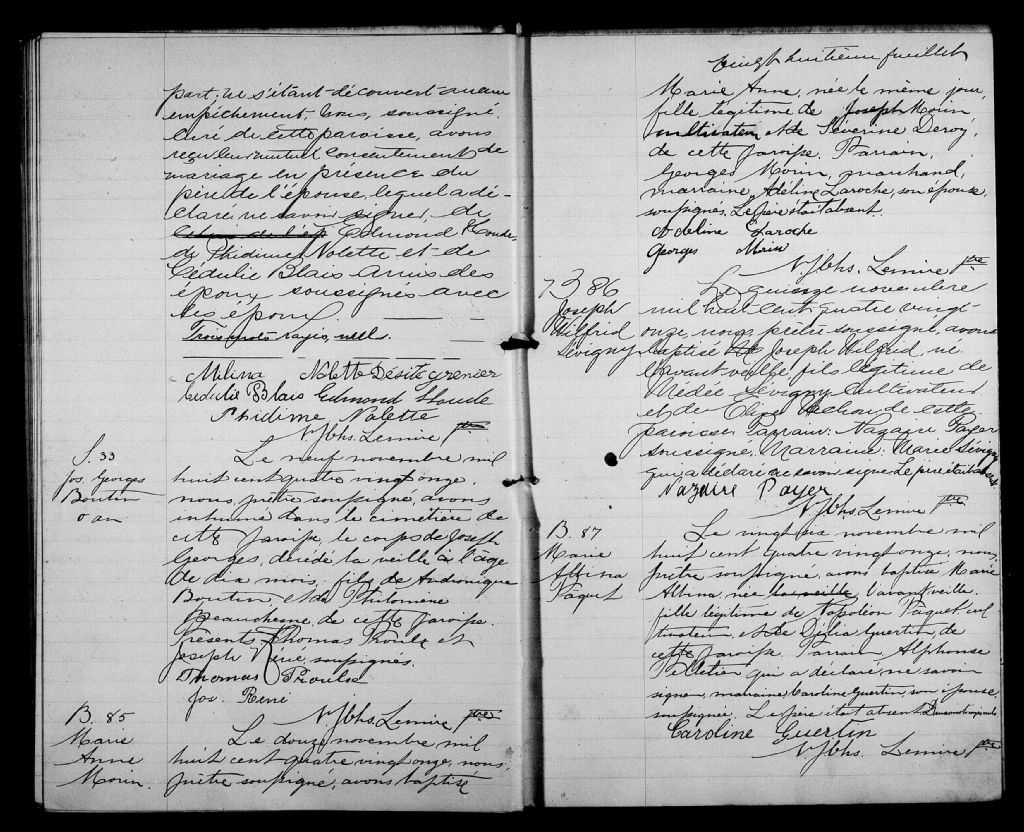 part, ne s'étant découvert aucun
empêchement, Nous, soussigné,
curé de cette paroisse, avons
reçu leur mutuel consentement de
mariage en présence du
père de l'épouse, lequel a dé-
claré ne savoir signer, de
Edmond Houde,
de Phidime Nolette et de
Cédulie Blais amis des
époux soussignés avec
les époux.
Trois mots rayés nuls.
Mélina Nolette Désité Grenier
Cédulie Blais Edmond Houde
Phidime Nolette
N. Jbhs. Lemire ptre
S. 33
Jos. Georges
Boutin
0 an
Le neuf novembre mil
huit cent quatre vingt onze,
nous, prêtre soussigné, avons
inhumé dans le cimetière de
cette paroisse, le corps de Joseph
Georges, décédé la veille à l'âge
de dix mois, fils de Andronique
Boutin et de Philomène
Beauchesne, de cette paroisse.
Présents, Thomas Proulx et
Joseph René, soussignés.
Thomas Proulx
Jos. René
N. Jbhs. Lemire ptre
B. 85
Marie
Anne
Morin.
Le douze novembre mil
huit cent quatre vingt onze, nous,
prêtre soussigné, avons baptisé
Vingt huitième feuillet
Marie Anne, née le même jour,
fille légitime de Joseph Morin,
cultivateur et de Séverine Deroy,
de cette paroisse. Parrain,
Georges Morin, marchand,
marraine, Adéline Laroche, son épouse,
soussignés. Le père était absent.
Adeline Laroche
Georges Morin
N. Jbhs. Lemire ptre
B 86
Joseph
Wilfrid
Sévigny
Le quinze novembre
mil huit cent quatre vingt
onze, nous, prêtre soussigné, avons
baptisé Joseph Wilfrid, né
l'avant veille, fils légitime de
Médée Sévigny cultivateur
et de Elise de cette
paroisse. Parrain: Nazaire Payer
soussigné, Marraine: Marie Sévigny
qui a déclaré ne savoir signer. Le père était absent.
Nazaire Payer
N. Jbhs. Lemire ptre
B. 87
Marie
Albina
Paquet
Le vingt six novembre mil
huit cent quatre vingt onze, nous,
prêtre soussigné, avons baptisé Marie
Albina, née la veille l'avant veille,
fille légitime de Napoléon Paquet cul-
tivateur, et de Délia Guertin, de
cette paroisse. Parrain, Alphonse
Pelletier qui a déclaré ne savoir
signer, marraine Caroline Guertin, son épouse,
soussignée. Le père était absent.
Caroline Guertin
N. Jbhs. Lemire ptre